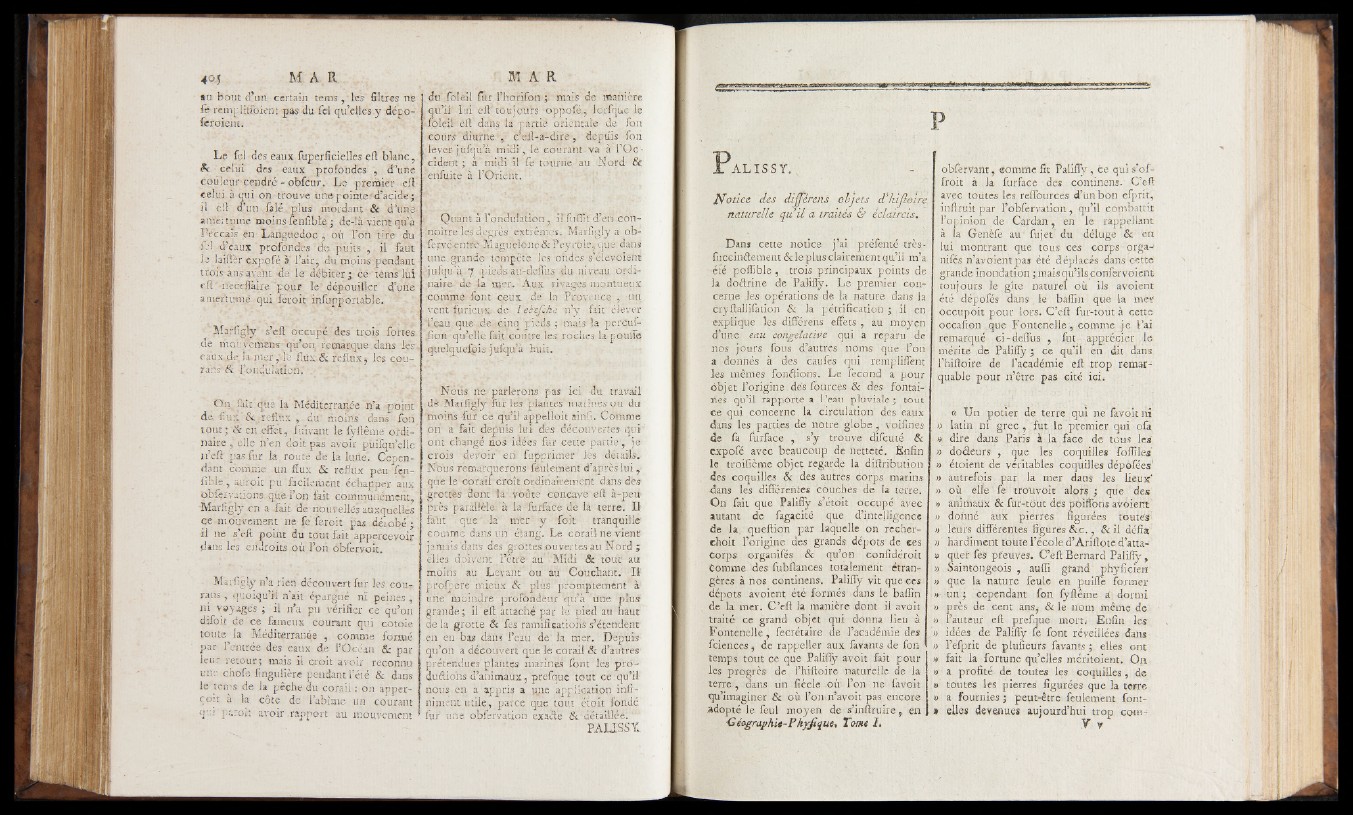 405 M A R
au bout d'un certain tems, les filtres ne
se rempliſſoient pas du ſel qu'elles y dépo-
ſeroient.
Le ſel des eaux ſuperficielles eſt blanc,
& celui des eaux profondes, d'une
couleur cendré-obſcur. Le premier eſt
celui à qui on trouve une pointe d'acide;
il eſt d'un ſalé plus mordant & d'une
amertume moins ſenſible; de-là vient qu'à
Peccais en Languedoc, où l'on tire du
ſel d'eaux profondes de puits, il faut
le laiſſer expoſé à l'air, du moins pendant
trois ans avant de le débiter; ce tems lui
eſt néceſſaire pour le dépouiller d'une
amertume qui ſeroit inſupportable.
Marſigly s'eſt occupé des trois ſortes
de mouvemens qu'on remarque dans les
eaux de la mer, le flux & reflux, les cou-
rans & l'ondulation.
On ſait que la Méditerranée n'a point
de flux & reflux, du moins dans ſon
tout; & en effet, ſuivant le ſyſtême ordi-
naire, elle n'en doit pas avoir puiſqu'elle
n'eſt pas ſur la route de la lune. Cepen-
dant comme un flux & reflux peu ſen-
ſible, auroit pu facilement échapper aux
obſervations que l'on fait communément,
Marſigly en a fait de nouvelles auxquelles
ce mouvement ne ſe ſeroit pas dérobé;
il ne s'eſt point du tout fait appercevoir
dans les endroits où l'on obſervoit.
Marſigly n'a rien découvert ſur les cou-
rans, quoiqu'il n'ait épargné ni peines,
ni voyages; il n'a pu vérifier ce qu'on
diſoit de ce fameux courant qui cotoie
toute la Méditerranée, comme formé
par l'entrée des eaux de l'Océan & par
leur retour; mais il croit avoir reconnu
une choſe ſingulière pendant l'été & dans
le tems de la pêche du corail: on apper-
çoit à la côte de l'abîme un courant
qui paroît avoir rapport au mouvement
M A R
du ſoleil ſur l'horiſon; mais de manière
qu'il lui eſt toujours oppoſé, lorſque le
ſoleil eſt dans la partie orientale de ſon
cours diurne, c'eſt-à-dire, depuis ſon
lever juſqu'à midi, le courant va à l'Oc-
cident; à midi il ſe tourne au Nord &
enſuite à l'Orient.
Quant à l'ondulation, il ſuffit d'en con-
noître les degrés extrêmes. Marſigly a ob-
ſervé entre Maguelone & Peyrole, que dans
une grande tempête les ondes s'élevoient
juſqu'à 7 pieds au-deſſus du niveau ordi-
naire de la mer. Aux rivages montueux
comme ſont ceux de la Provence, un
vent furieux de lebeſche n'y fait élever
l'eau que de cinq pieds; mais la percuſ-
ſion qu'elle fait contre les roches la pouſſe
quelquefois juſqu'à huit.
Nous ne parlerons pas ici du travail
de Marſigly ſur les plantes marines ou du
moins ſur ce qu'il appelloit ainſi. Comme
on a fait depuis lui des découvertes qui
ont changé nos idées ſur cette partie, je
crois devoir en ſupprimer les détails.
Nous remarquerons ſeulement d'après lui,
que le corail croît ordinairement dans des
grottes dont la voûte concave eſt à-peu-
près parallèle à la ſurface de la terre. Il
faut que la mer y ſoit tranquille
comme dans un étang. Le corail ne vient
jamais dans des grottes ouvertes au Nord;
elles doivent l'être au Midi & tout au
moins au Levant ou au Couchant. Il
proſpère mieux & plus promptement à
une moindre profondeur qu'à une plus
grande; il eſt attaché par le pied au haut
de la grotte & ſes ramifications s'étendent
en en bas dans l'eau de la mer. Depuis
qu'on a découvert que le corail & d'autres
prétendues plantes marines ſont les pro-
ductions d'animaux, preſque tout ce qu'il
nous en a appris a une application infi-
niment utile, parce que tout étoit fondé
ſur une obſervation exacte & détaillée.
PALISSY.
P
PALISSY.
Notice des différens objets d'hiſtoire
naturelle qu'il a traités & éclaircis.
Dans cette notice j'ai préſenté très-
ſuccinctement & le plus clairement qu'il m'a
été poſſible, trois principaux points de
la doctrine de Paliſſy. Le premier con-
cerne les opérations de la nature dans la
cryſtalliſation & la pétrification; il en
explique les différens effets, au moyen
d'une eau congelative qui a reparu de
nos jours ſous d'autres noms que l'on
a donnés à des cauſes qui rempliſſent
les mêmes fonctions. Le ſecond a pour
objet l'origine des ſources & des fontai-
nes qu'il rapporte à l'eau pluviale; tout
ce qui concerne la circulation des eaux
dans les parties de notre globe, voiſines
de ſa ſurface, s'y trouve diſcuté &
expoſé avec beaucoup de netteté. Enfin
le troiſième objet regarde la diſtribution
des coquilles & des autres corps marins
dans les différentes couches de la terre.
On ſait que Paliſſy s'étoit occupé avec
autant de ſagacité que d'intelligence
de la queſtion par laquelle on recher-
choit l'origine des grands dépots de ces
corps organiſés & qu'on conſidéroit
comme des ſubſtances totalement étran-
gères à nos continens. Paliſſy vit que ces
dépots avoient été formés dans le baſſin
de la mer. C'eſt la manière dont il avoit
traité ce grand objet qui donna lieu à
Fontenelle, ſecrétaire de l'académie des
ſciences, de rappeller aux ſavants de ſon
temps tout ce que Paliſſy avoit fait pour
les progrès de l'hiſtoire naturelle de la
terre, dans un ſiècle où l'on ne ſavoit
qu'imaginer & où l'on n'avoit pas encore
adopté le ſeul moyen de s'inſtruire, en
Géographie-Phyſique. Tome I.
obſervant, comme fit Paliſſy, ce qui s'of-
froit à la ſurface des continens. C'eſt
avec toutes les reſſources d'un bon eſprit,
inſtruit par l'obſervation, qu'il combattit
l'opinion de Cardan, en le rappellant
à la Genèſe au ſujet du déluge & en
lui montrant que tous ces corps orga-
niſés n'avoient pas été déplacés dans cette
grande inondation; mais qu'ils conſervoient
toujours le gîte naturel où ils avoient
été dépoſés dans le baſſin que la mer
occupoit pour lors. C'eſt ſur-tout à cette
occaſion que Fontenelle, comme je l'ai
remarqué ci-deſſus, fut apprécier le
mérite de Paliſſy; ce qu'il en dit dans
l'hiſtoire de l'académie eſt trop remar-
quable pour n'être pas cité ici.
« Un potier de terre qui ne ſavoit ni
» latin ni grec, fut le premier qui oſa
» dire dans Paris à la face de tous les
» docteurs, que les coquilles foſſiles
» étoient de véritables coquilles dépoſées
» autrefois par la mer dans les lieux
» où elle ſe trouvoit alors; que des
» animaux & ſur-tout des poiſſons avoient
» donné aux pierres figurées toutes
» leurs différentes figures &c., & il défia
» hardiment toute l'école d'Ariſtote d'atta-
» quer ſes preuves. C'eſt Bernard Paliſſy,
» Saintongeois, auſſi grand phyſicien
» que la nature ſeule en puiſſe former
» un; cependant ſon ſyſtême a dormi
» près de cent ans, & le nom même de
» l'auteur eſt preſque mort. Enfin les
» idées de Paliſſy ſe ſont réveillées dans
» l'eſprit de pluſieurs ſavants; elles ont
» fait la fortune qu'elles méritoient. On
» a profité de toutes les coquilles, de
» toutes les pierres figurées que la terre
» a fournies; peut-être ſeulement ſont-
» elles devenues aujourd'hui trop com-
V v